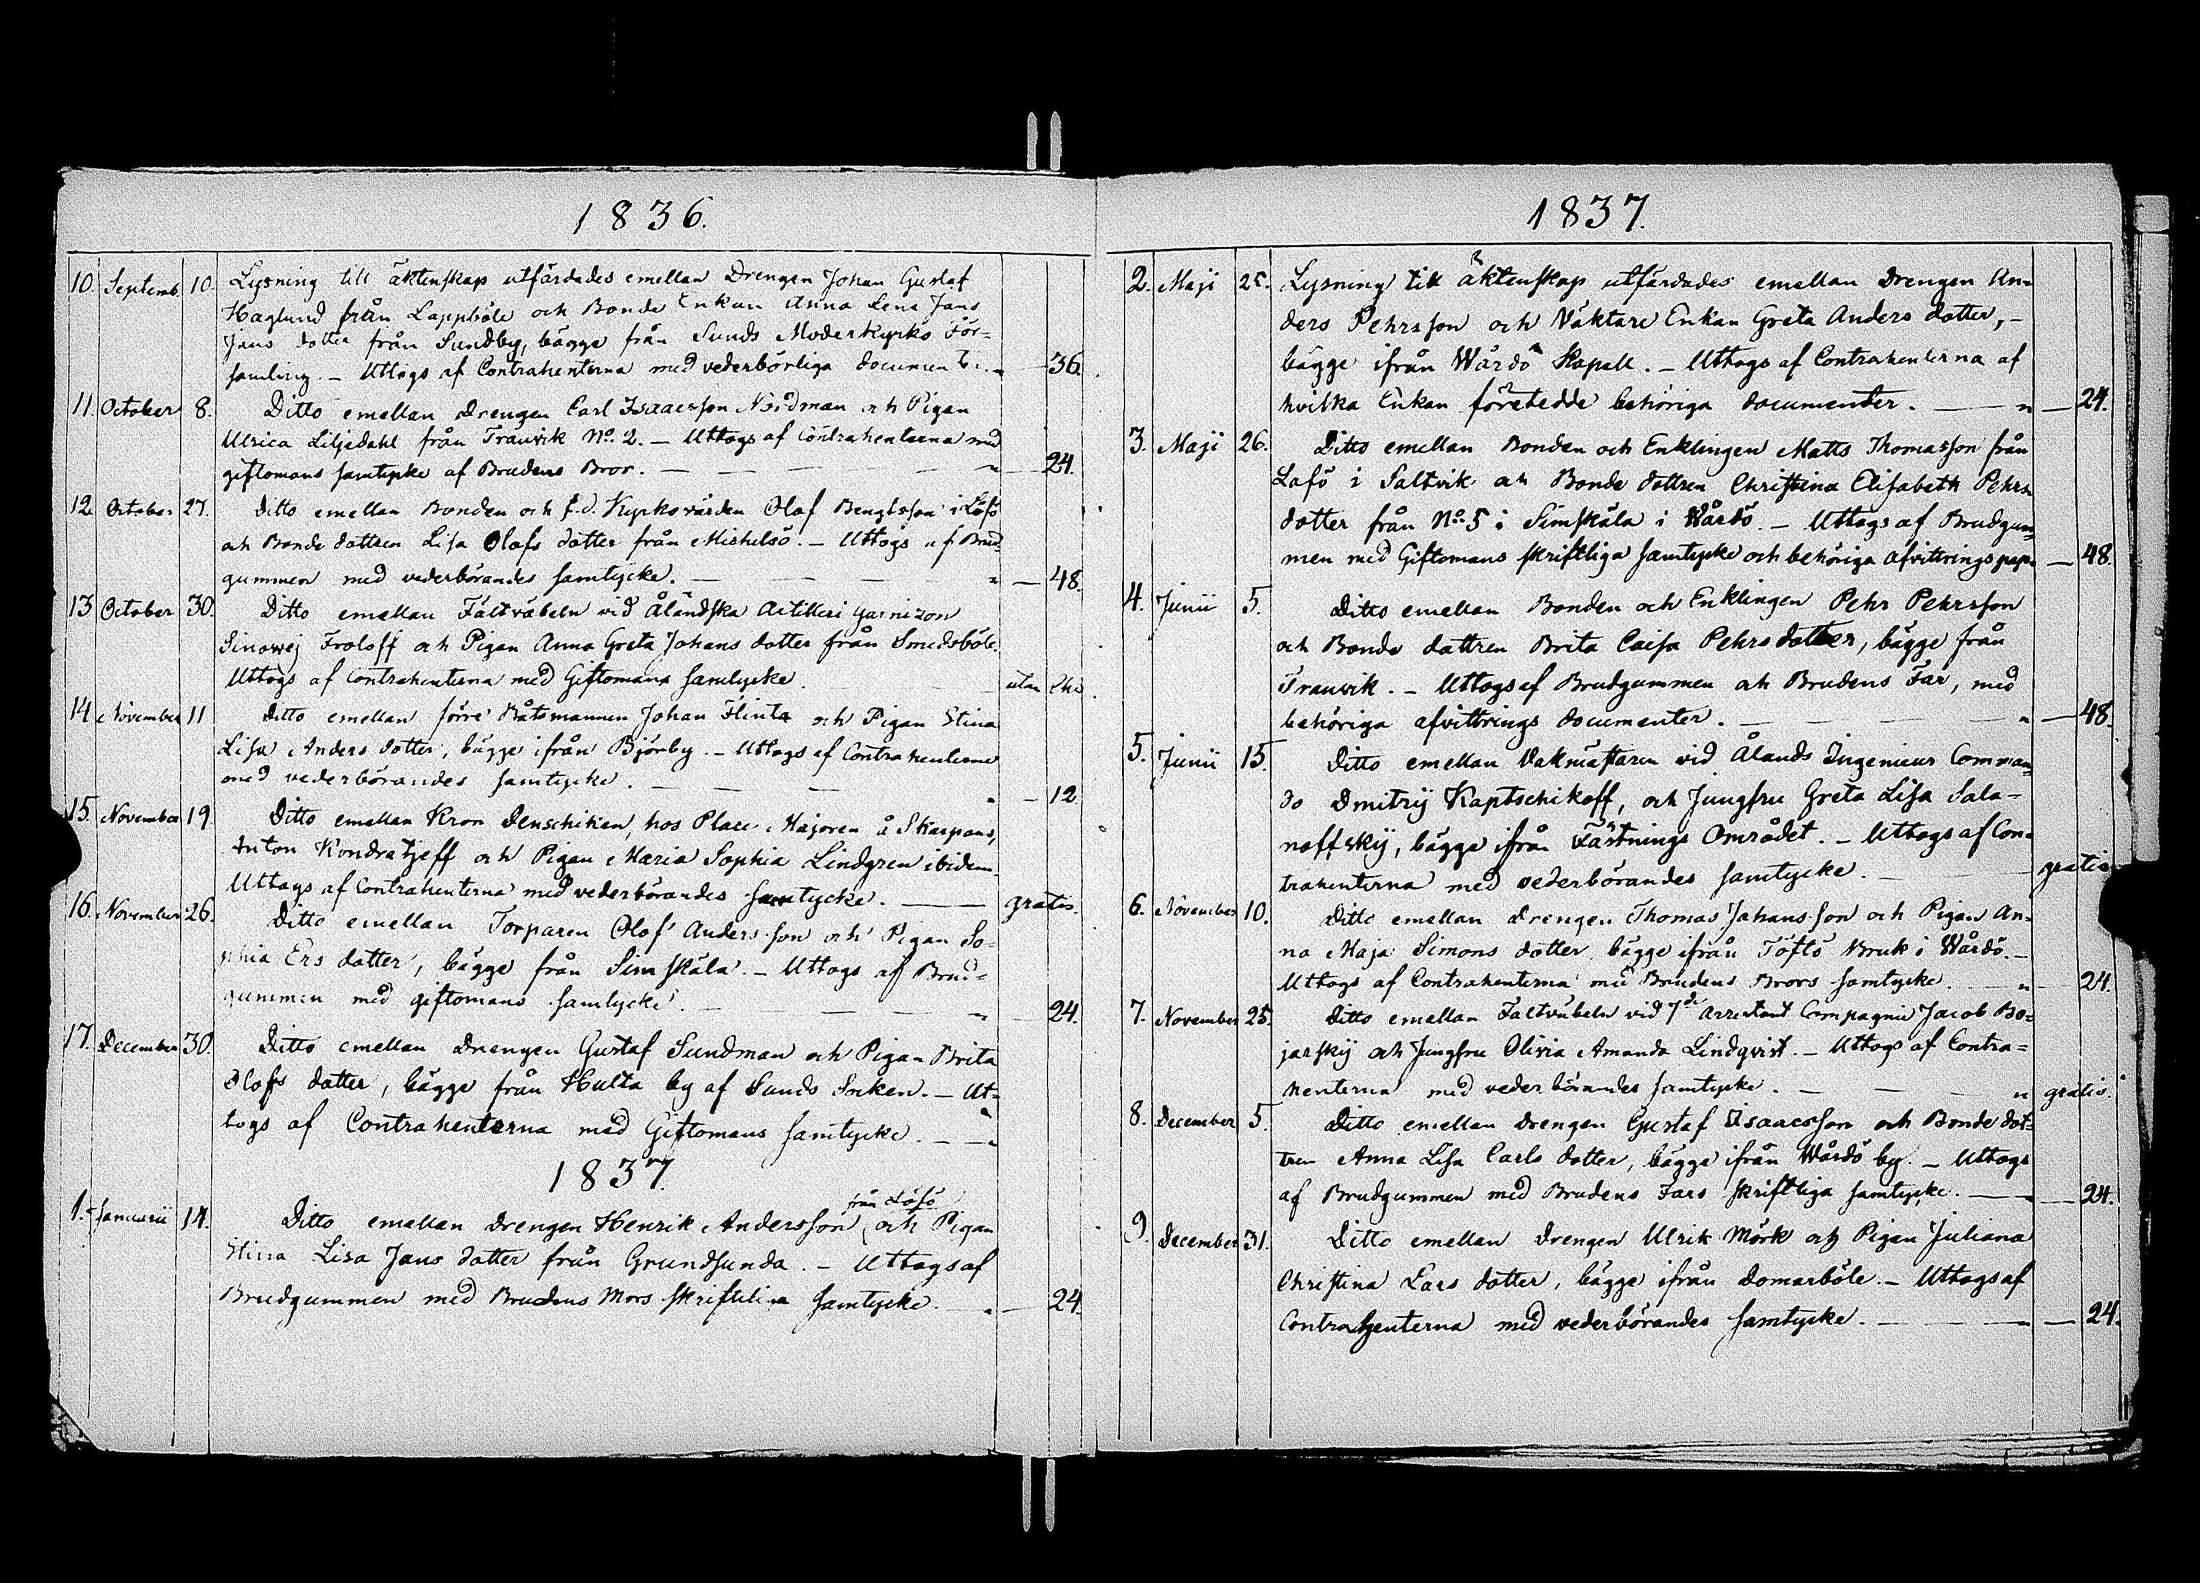 1836.
10. Septemb. 10. Lysning till äktenskap utfärdades emellan Drengen Johan Gustaf
Haglund från Lappböle och Bonde Enkan Anna Lena Jans
Jans dotter från Sundby, bägge från Sunds Moderkyrko För-
samling. – Uttogs af Contrahenterna med vederbörliga documenter. 36.
11. October 8. Ditto emellan Drengen Carl Isaacsson Nordman och Pigan
Ulrica Liljedahl från Tranvik No. 2. – Uttogs af Contrahenterna med
giftomans samtycke af Brudens Bror. — — — 24.
12. October 27. Ditto emellan Bonden och f.d. Kyrkovärden Olof Bengtsson i Löfö
och Bonde dottren Lisa Olofs dotter från Michelsö. – Uttogs af Brud-
gummen med vederbörandes samtycke. — — 48.
13. October 30. Ditto emellan Fältväbeln vid Åländska Artilleri garnizon
Sinowej Froloff och Pigan Anna Greta Johans dotter från Smedsböle.
Uttogs af Contrahenterna med Giftomans samtycke. utan
14. November 11 Ditto emellan förre Båtsmannen Johan Flinta och Pigan Stina
Lisa Anders dotter, bägge ifrån Björby. – Uttogs af Contrahenterne
med vederbörandes samtycke. — — — 12.
15. November 19. Ditto emellan Kron Denschiken, hos Place Majoren å Skarpans,
Anton Kondratjeff och Pigan Maria Sophia Lindgren ibidem.
Uttogs af Contrahenterna med vederbörandes samtycke. — gratis.
16. November 26. Ditto emellan Torparen Olof Andersson och Pigan So-
phia Ers dotter, bägge från Simskäla. – Uttogs af Brud-
gummen med giftomans samtycke. — — 24.
17. December 30. Ditto emellan Drengen Gustaf Sundman och Pigan Brita
Olofs dotter, bägge från Hulta by af Sunds Socken. – Ut-
togs af Contrahenterna med Giftomans samtycke. — —
1837.
från Löfö
1. Januarii 14. Ditto emellan Drengen Henrik Andersson och Pigan
Stina Lisa Jans dotter från Grundsunda. – Uttogs af
Brudgummen med Brudens Mors skriftliga samtycke. — 24.
1837.
2. Maji 25. Lysning till äktenskap utfärdades emellan Drengen An-
ders Pehrsson och Väktare Enkan Greta Anders dotter, –
bägge ifrån Wårdö Kapell. – Uttogs af Contrahenterna af
hvilka Enkan företedde behöriga documenter. — — 24.
3. Maji 26. Ditto emellan Bonden och Enklingen Matts Thomasson från
Lafö i Saltvik och Bonde dottren Christina Elisabeth Pehrs
dotter från No. 5 i Simskäla i Wårdö. – Uttogs af Brudgum-
men med Giftomans skriftliga samtycke och behöriga afvittrings pap. — 48.
4. Junii 5. Ditto emellan Bonden och Enklingen Pehr Pehrsson
och Bonde dottren Brita Caisa Pehrs dotter, bägge från
Tranvik. – Uttogs af Brudgummen och Brudens Far, med
behöriga afvittrings documenter. — — — 48.
5. Junii 15. Ditto emellan Vakmästaren vid Ålands Ingenieur Comman-
do Dmitrij Kaptschikoff, och Jungfru Greta Lisa Sala-
noffskij, bägge ifrån Fästnings Området. – Uttogs af Con-
trahenterna med vederbörandes samtycke. — — gratis
6. November 10. Ditto emellan Drengen Thomas Johansson och Pigan An-
na Maja Simons dotter, bägge ifrån Töftö Bruk i Wårdö. –
Uttogs af Contrahenterna med Brudens Brors samtycke. — 24.
7. November 25. Ditto emellan Fältväbeln vid 7de Arrestant Compagnie Jacob Bo-
jarskij och Jungfru Olivia Amanda Lindqvist. – Uttogs af Contra-
henterna med vederbörandes samtycke. — — gratis.
8. December 5. Ditto emellan Drengen Gustaf Isaacsson och Bonde dot-
tren Anna Lisa Carls dotter, bägge ifrån Wårdö by. – Uttogs
af Brudgummen med Brudens Fars skriftliga samtycke. — — 24.
9. December 31. Ditto emellan Drengen Ulrik Mörk och Pigan Juliana
Christina Lars dotter, bägge ifrån Domarböle. – Uttogs af
Contrahenterna med vederbörandes samtycke. — — — 24.